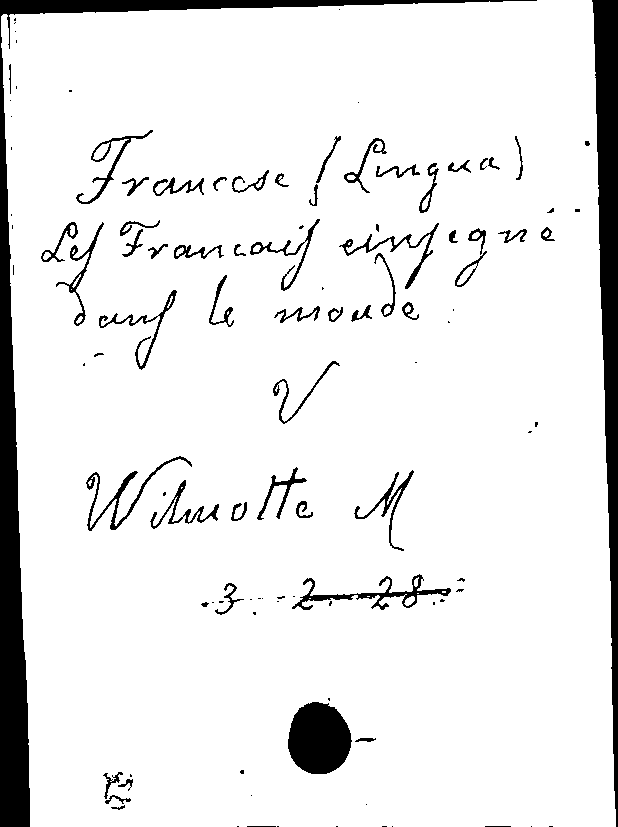 Francese (Lingua)
Les Francais einsegné
dans le monde
V
Wilmotte M
3. 2. 28.